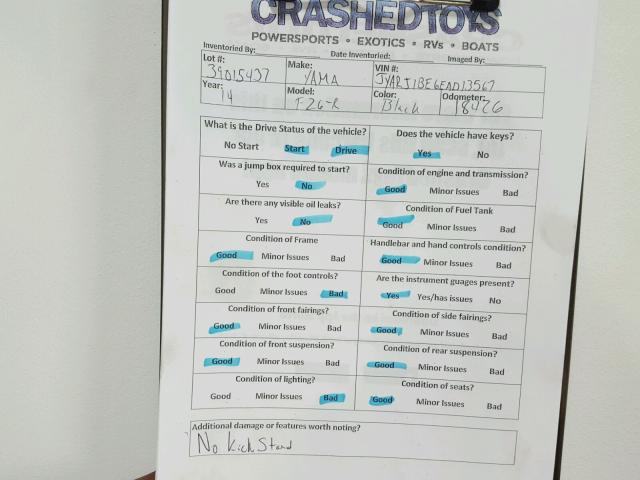 CRASHEDTOYS
POWERSPORTS • EXOTICS • RVs • BOATS
Inventoried By: Date Inventoried: Imaged By:
Lot #: 39015437 Make: YAMA VIN #: JYARJ1BE6EA013567
Year: 14 Model: FZ6-R Color: Black Odometer: 18426
What is the Drive Status of the vehicle? Does the vehicle have keys?
No Start Start Drive Yes No
Was a jump box required to start? Condition of engine and transmission?
Yes No Good Minor Issues Bad
Are there any visible oil leaks? Condition of Fuel Tank
Yes No Good Minor Issues Bad
Condition of Frame Handlebar and hand controls condition?
Good Minor Issues Bad Good Minor Issues Bad
Condition of the foot controls? Are the instrument guages present?
Good Minor Issues Bad Yes Yes/has issues No
Condition of front fairings? Condition of side fairings?
Good Minor Issues Bad Good Minor Issues Bad
Condition of front suspension? Condition of rear suspension?
Good Minor Issues Bad Good Minor Issues Bad
Condition of lighting? Condition of seats?
Good Minor Issues Bad Good Minor Issues Bad
Additional damage or features worth noting?
No Kick Stand